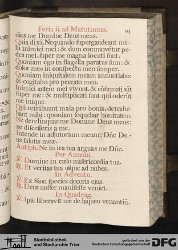 Feria ij. ad Matutinas.
dices me Domine Deus meus.
Quia dixi, Nequando supergaudeant mi-
hi inimici mei: & dum commoventur pe-
des mei, super me magna locuti sunt.
Quoniam ego in flagella paratus sum: &
dolor meus in conspectu meo semper.
Quoniam iniquitatem meam annuntiabo:
& cogitabo pro peccato meo.
Inimici autem mei vivunt, & confirmati sunt
super me: & multiplicati sunt qui oderunt
me inique.
Qui retribuunt mala pro bonis, detrahe-
bant mihi: quoniam sequebar bonitatem.
Ne derelinquas me Domine Deus meus:
ne discesseris a me.
Intende in adiutorium meum: Dñe De-
us salutis meæ.
Antiph. Ne in ira tua arguas me Dñe.
Per Annum.
℣. Domine in cœlo misericordia tua.
℟. Et veritas tua usque ad nubes.
In Adventu.
℣. Ex Sion species decoris eius.
℟. Deus noster manifeste veniet.
In Quadrag.
℣. Ipse liberavit me de laqueo venantiũ.
Stadtbibliothek
und Stadtarchiv Trier
Gefördert durch
DFG